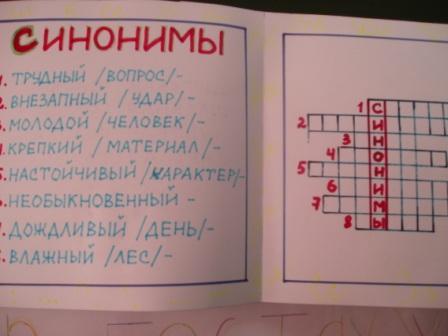 СИНОНИМЫ
1. ТРУДНЫЙ /ВОПРОС/-
2. ВНЕЗАПНЫЙ /УДАР/-
3. МОЛОДОЙ /ЧЕЛОВЕК/-
4. КРЕПКИЙ /МАТЕРИАЛ/-
5. НАСТОЙЧИВЫЙ /ХАРАКТЕР/-
6. НЕОБЫКНОВЕННЫЙ -
7. ДОЖДЛИВЫЙ /ДЕНЬ/-
8. ВЛАЖНЫЙ /ЛЕС/-
1 С
2 И
3 Н
4 О
5 Н
6 И
7 М
8 Ы